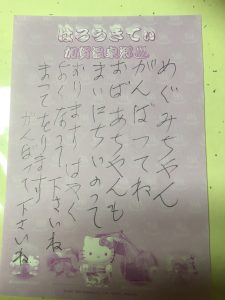 はろうきてぃ
加賀温泉郷
めぐみちゃん
がんばってね
おばあちゃんも
まいにちいのって
おりますはやく
なって下さいね
まっております
がんばって下さいね